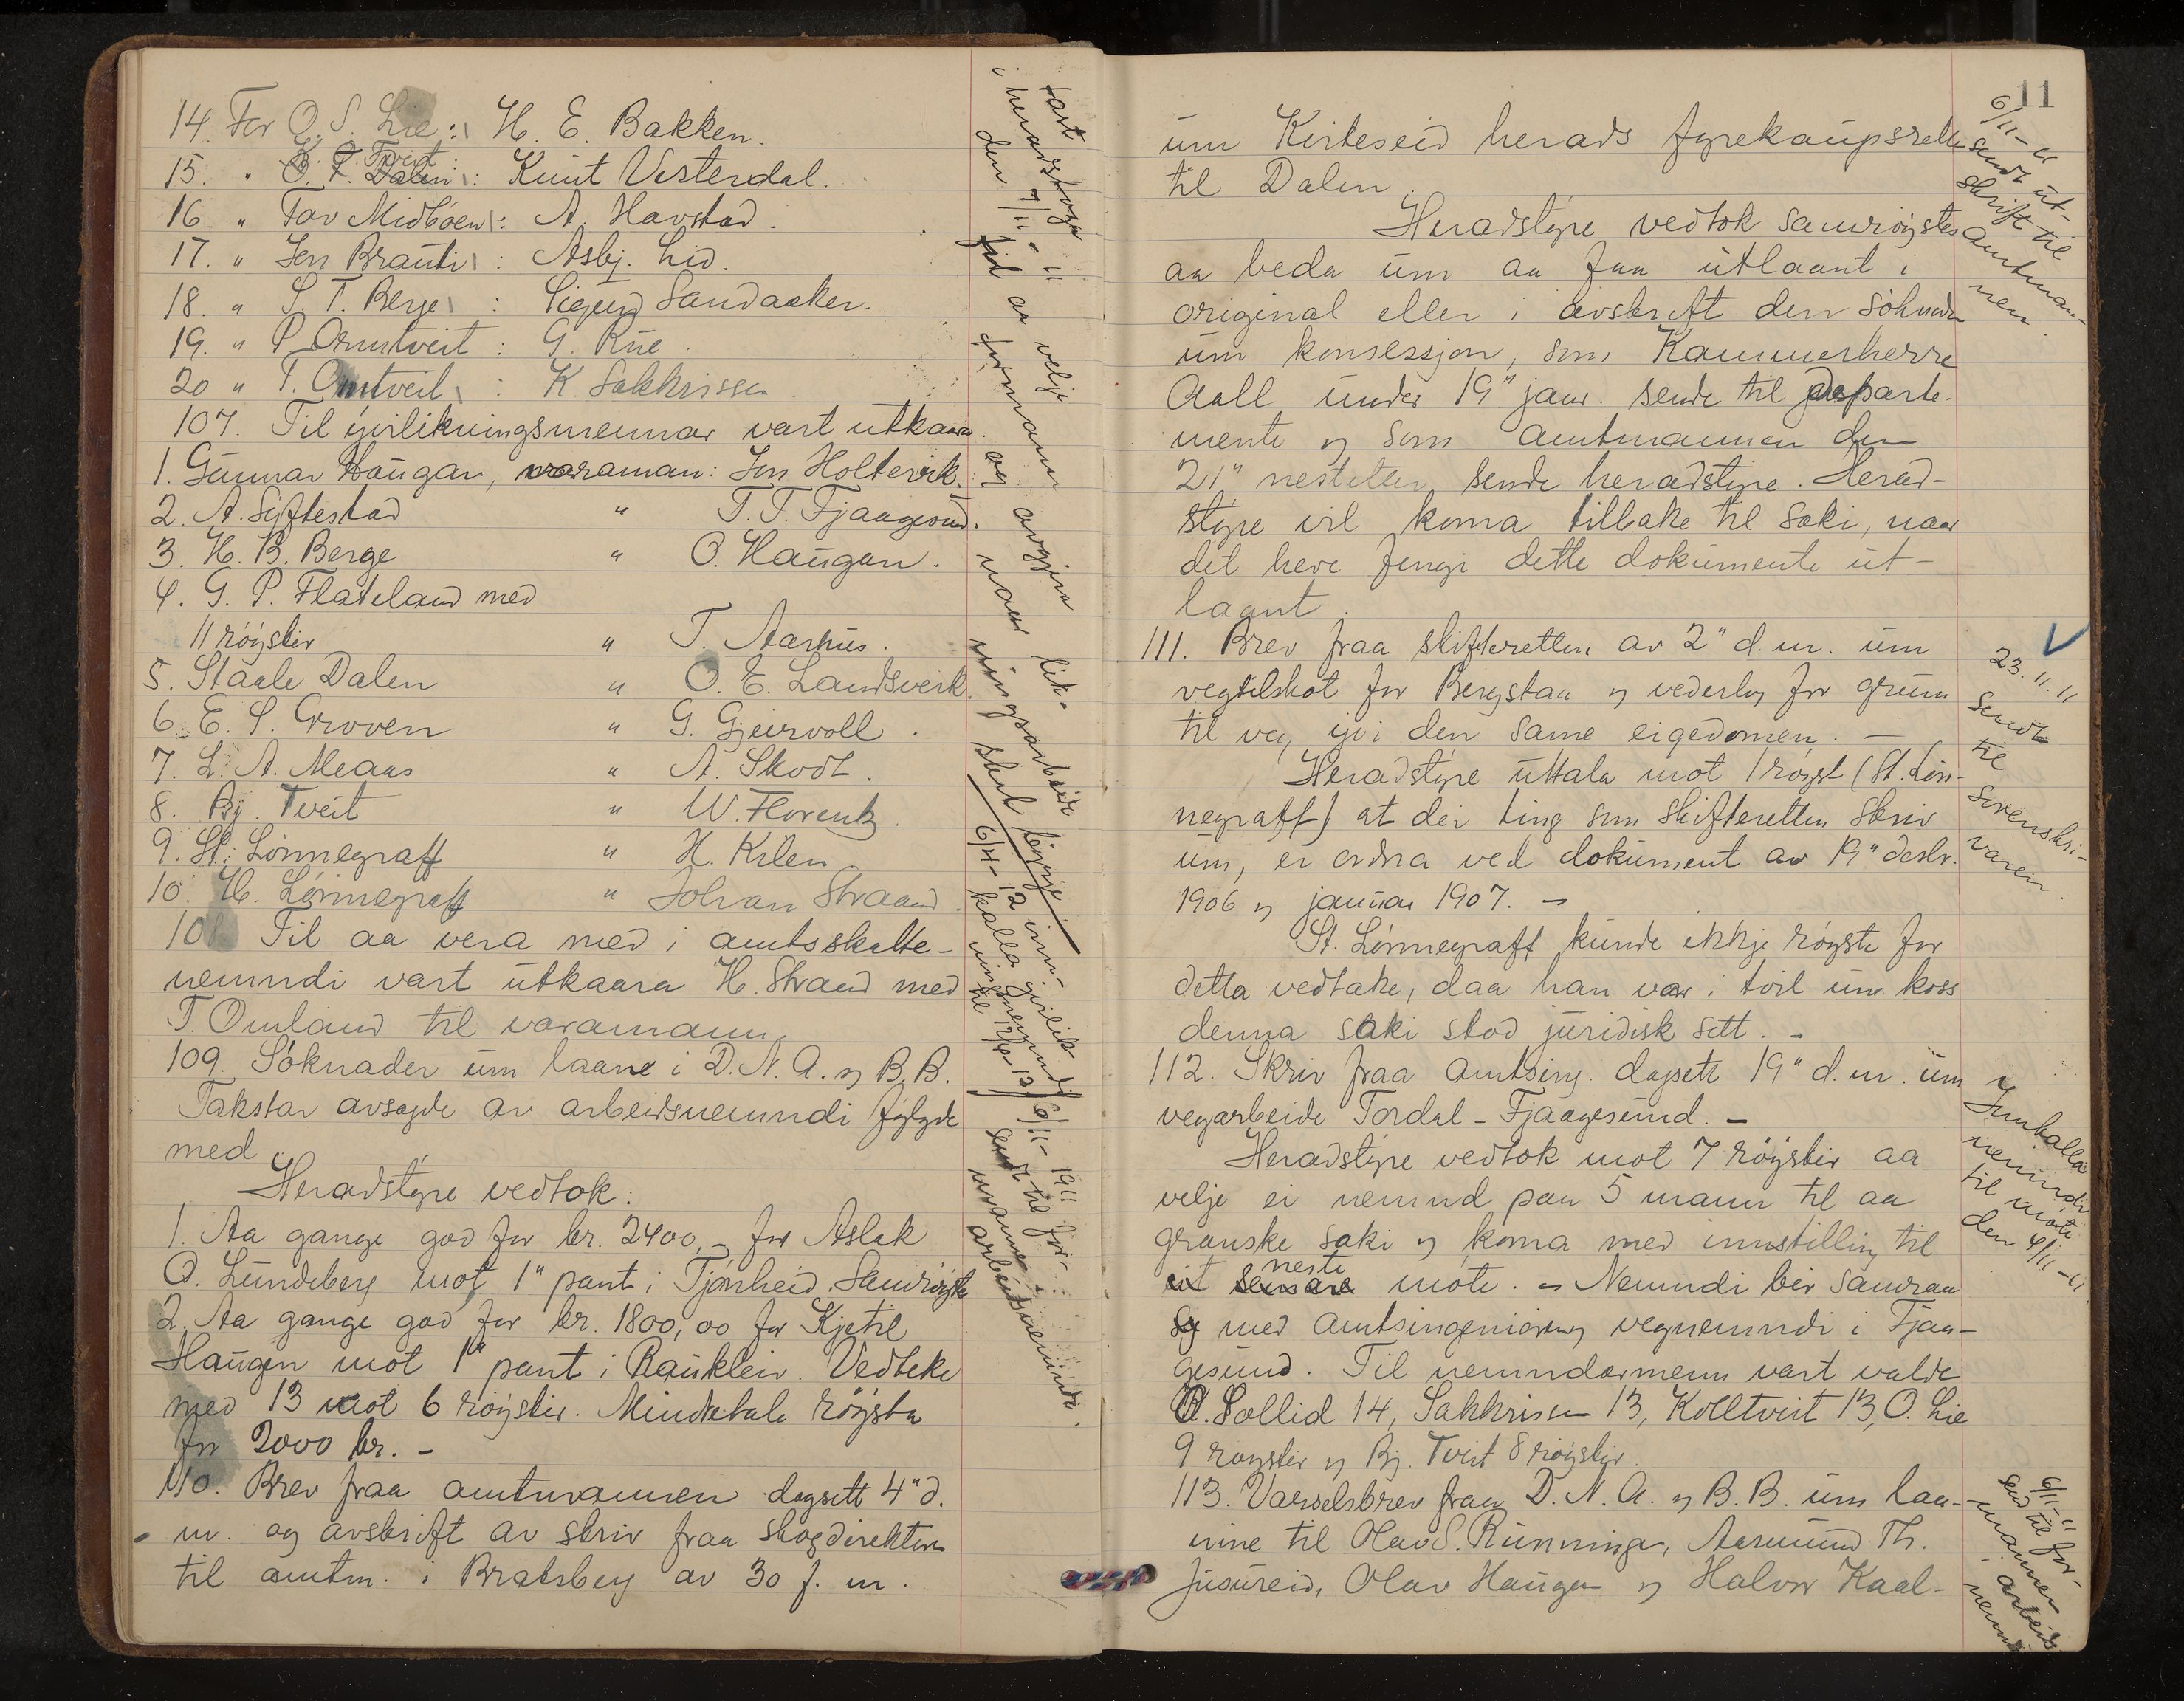 14. For O. S. Lie: H. E. Bakken.
K. O. Tveit
15. " O. T. Dalen: Knut Vesterdal.
16. " Tov Midbøen: A. Havstad.
17. " Jon Brauti: Asbj. Lid.
18. " S. T. Berge: Sigurd Sandaaker.
19. " P. Omtveit: G. Rue.
20 " T. Omtveit: K. Sakkrissen
107. Til yvirlikningsmennar vart utkaara.
1. Gunnar Haugan, varaman: Jon Holtevik.
2. A. Siftestad " T. T. Fjaagesund.
3. H. B. Berge " O. Haugan.
4. G. P. Flateland med
11 røyster " T. Aarhus.
5. Staale Dalen " O. E. Landsverk.
6. E. S. Groven " G. Gjeirvoll.
7. L. A. Meaas " A. Skodt.
8. Bj. Tveit " W. Florentz.
9. St. Lønnegraff " H. Kilen
10. H. Lønnegraff " Johan Straand.
108 Til aa vera med i amtsskatte-
nemndi vart utkaara H. Strand med
T. Omland til varamann.
109. Søknader um laane i D. N. A. og B. B.
Takstar avsagde av arbeidsnemndi fylgde
med.
Heradstyre vedtok:
1. Aa gange god for kr. 2400,- for Aslak
O. Lundeberg mot 1" pant i Tjønheid. Samrøystes
2. Aa gange god for kr. 1800,00 for Kjetil
Haugen mot 1" pant i Raukleiv. Vedteke
med 13 mot 6 røyster. Mindretale røysta
for 2000 kr. -
110. Brev fraa amtmannen dagsett 4" d.
m. og avskrift av skriv fraa skogdirektøren
til amtm. i Bratsberg av 30 f. m.
i heradstoga
den 7/11-11
fid aa velje formann
og avgjera naar lik-
ningsarbeide skal byrje
6/4-12 inn-
kalla yvirlik-
ningsnemndi
til 12/4-12
6/11-1911
Sendt til for-
mannen i
arbeidsnemndi.
11
um Kviteseid herads fyrekaupsrett
til Dalen.
Heradstyre vedtok samrøystes
aa beda um aa faa utlaant i
original eller i avskrift den søknad
um konsessjon, som Kammerherre
Aall under 19" jan. sende til departe-
mente og som amtmannen den
21" nestetter sende heradstyre. Herad-
styre vil koma tilbake til saki, naar
det heve fengi dette dokumente ut-
laant.
111. Brev fraa skifteretten av 2" d. m. um
vegtilskot for Bergstaa og vederlag for grunn
til veg yvi den same eigedomen. -
Heradstyre uttala mot 1 røyst (St. Løn-
negraff) at dei ting som skifteretten skriv
um, er ordna ved dokument av 19" desbr.
1906 og januar 1907. -
St. Lønnegraff kunde ikkje røyste for
detta vedtake, daa han var i tvil um koss
denna saki stod juridisk sett. -
112. Skriv fraa amtsing. dagsett 19" d. m. um
vegarbeide Tordal - Fjaagesund. -
Heradstyre vedtok mot 7 røyster aa
velje ei nemnd paa 5 mann til aa
granske saki og koma med innstilling til
neste
eit seinare møte. - Nemndi bør samraa
seg med amtsingeniøren og vegnemndi i Fjaa-
gesund. Til nemndarmenn vart valde
O. Sollid 14, Sakkrissen 13, Kolltveit 13, O. Lie
9 røyster og Bj. Tveit 8 røyster.
113. Varselsbrev fraa D. N. A. og B. B. um laa-
nine til Olav S. Runninge, Aasmund Th.
Jusureid, Olav Haugen og Halvor Kaal-
6/11-11
sendt ut-
skrift til
amtman-
nen.
23.11.11
Sendt
til
sorenskri-
varen.
Innkalla
nemndi
til møte
den 9/11-11
6/11-11
send til for-
mannen i
arbeids-
nemndi